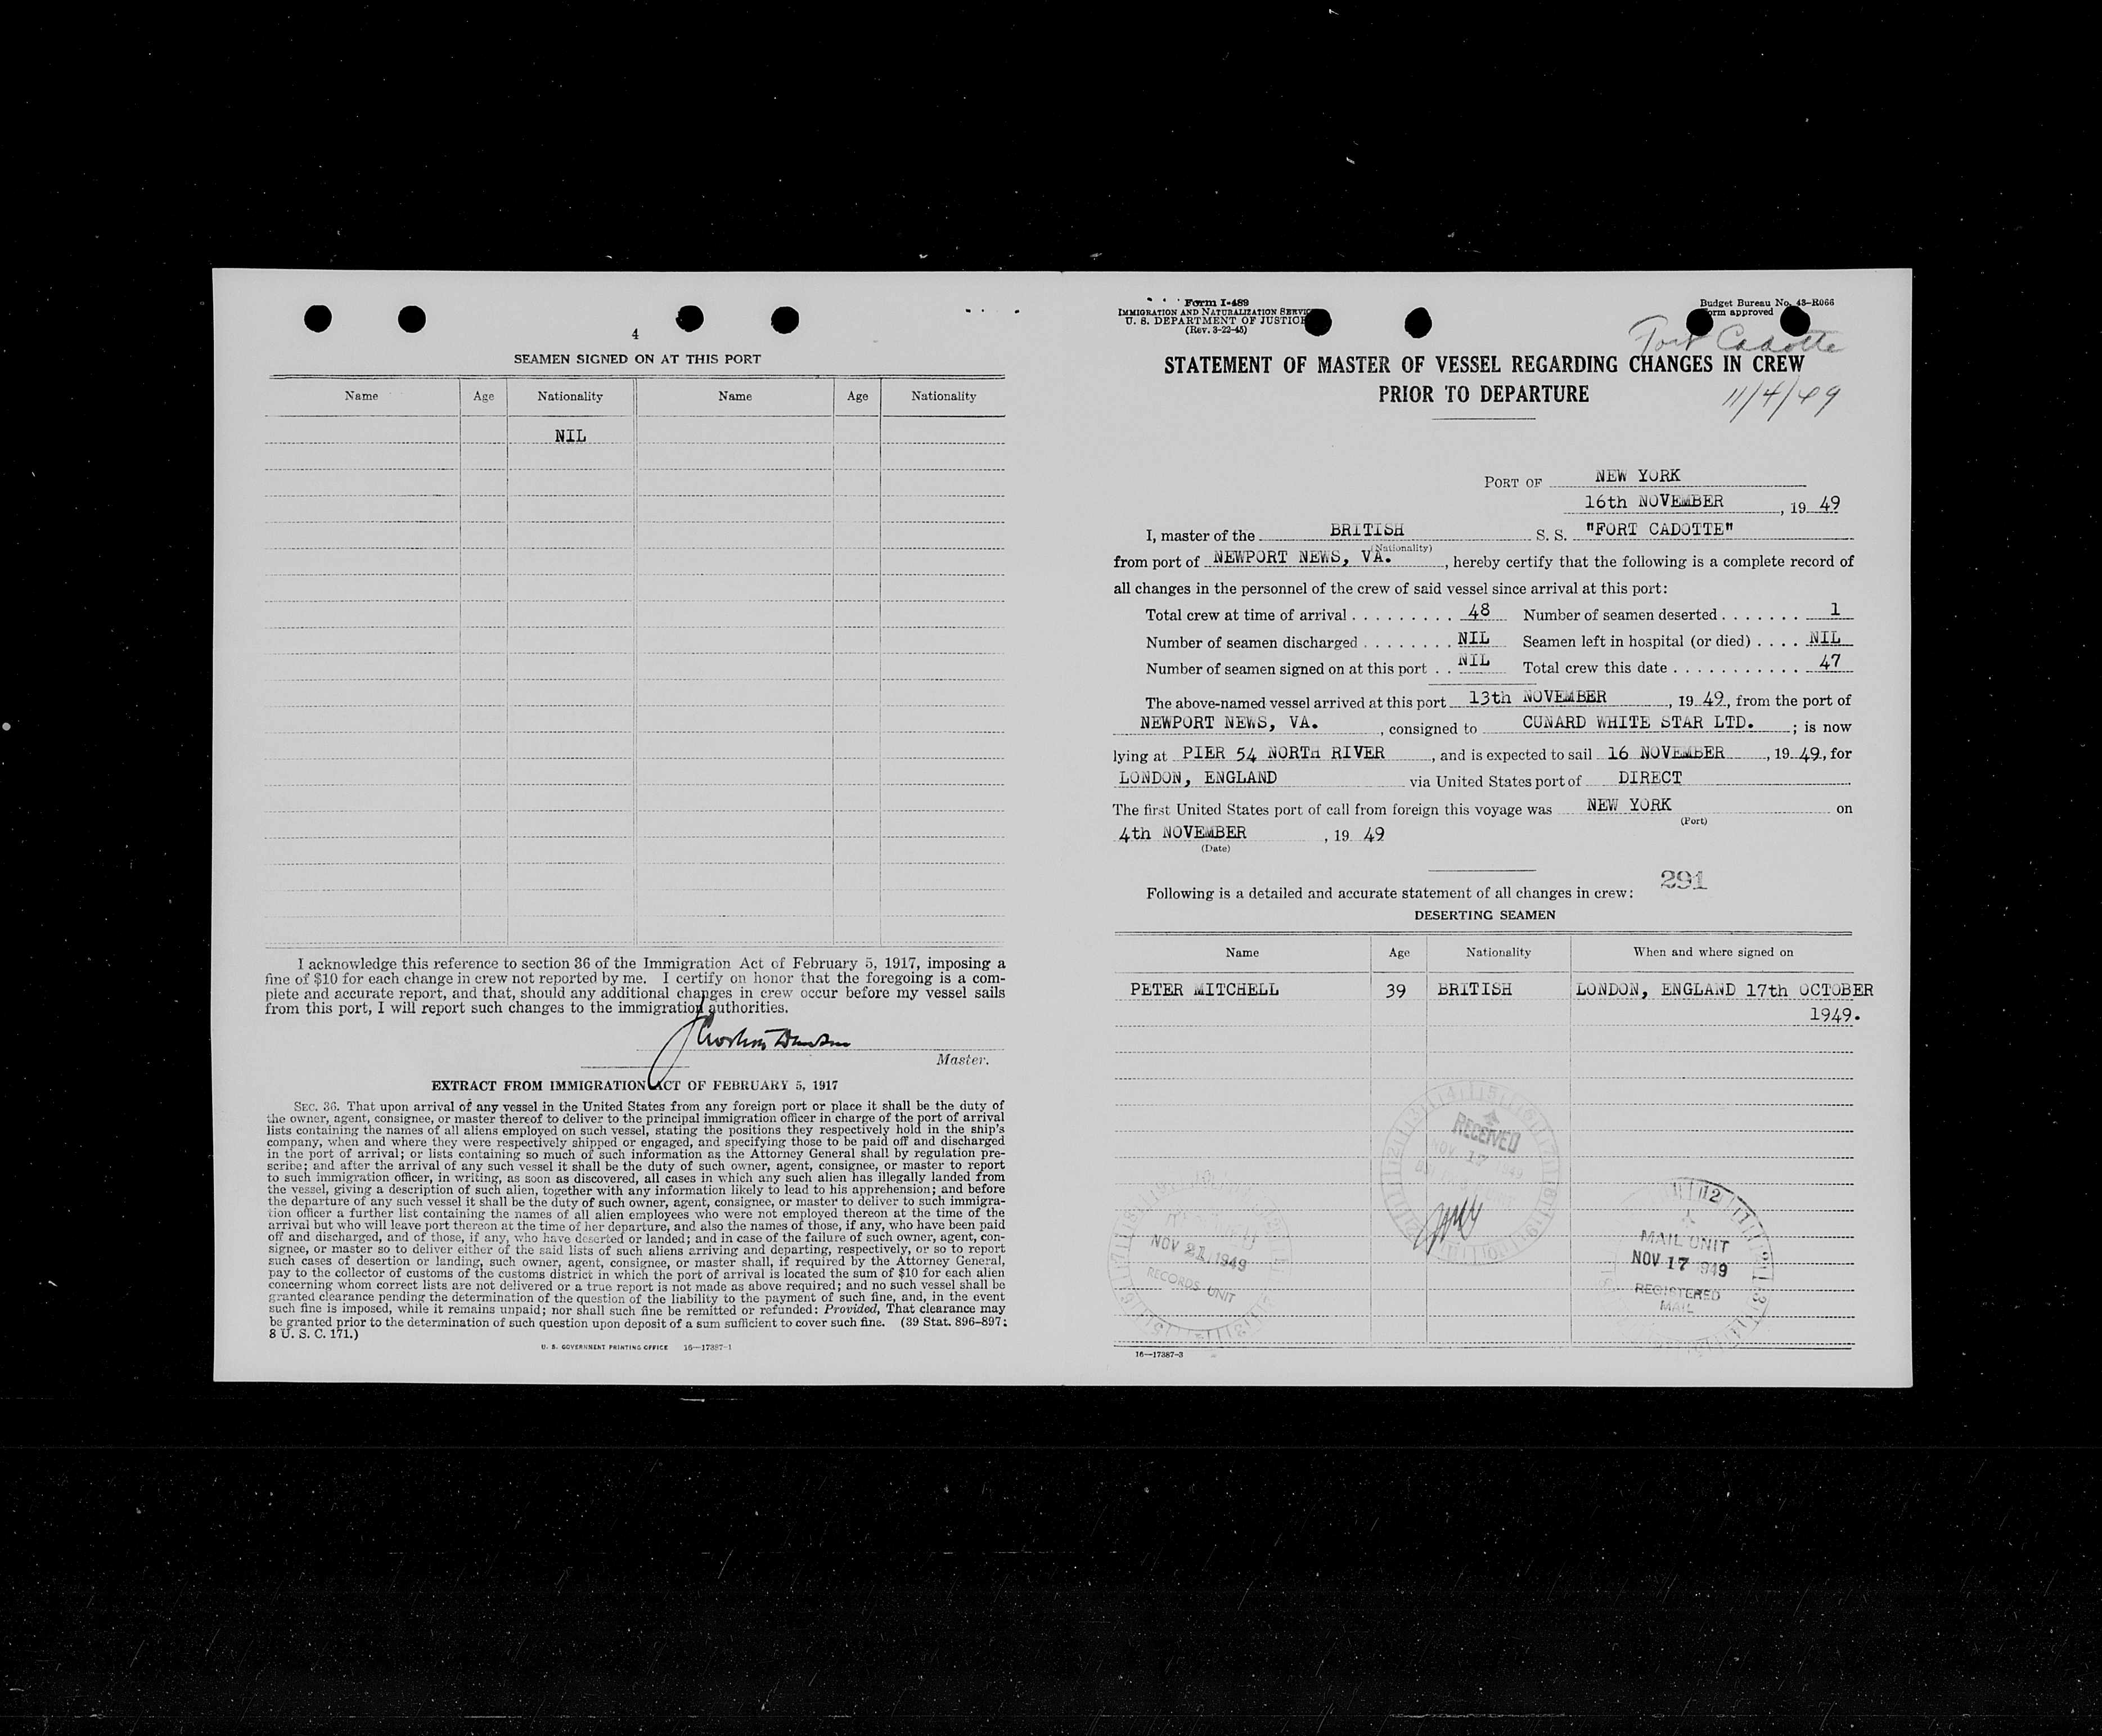 4
SEAMEN SIGNED ON AT THIS PORT
Name Age Nationality Name Age Nationality
NIL
I acknowledge this reference to section 36 of the Immigration Act of February 5, 1917, imposing a
fine of $10 for each change in crew not reported by me. I certify on honor that the foregoing is a com-
plete and accurate report, and that, should any additional changes in crew occur before my vessel sails
from this port, I will report such changes to the immigration authorities.
Master.
EXTRACT FROM IMMIGRATION ACT OF FEBRUARY 5, 1917
SEC. 36. That upon arrival of any vessel in the United States from any foreign port or place it shall be the duty of
the owner, agent, consignee, or master thereof to deliver to the principal immigration officer in charge of the port of arrival
lists containing the names of all aliens employed on such vessel, stating the positions they respectively hold in the ship's
company, when and where they were respectively shipped or engaged, and specifying those to be paid off and discharged
in the port of arrival; or lists containing so much of such information as the Attorney General shall by regulation pre-
scribe; and after the arrival of any such vessel it shall be the duty of such owner, agent, consignee, or master to report
to such immigration officer, in writing, as soon as discovered, all cases in which any such alien has illegally landed from
the vessel, giving a description of such alien, together with any information likely to lead to his apprehension; and before
the departure of any such vessel it shall be the duty of such owner, agent, consignee, or master to deliver to such immigra-
tion officer a further list containing the names of all alien employees who were not employed thereon at the time of the
arrival but who will leave port thereon at the time of her departure, and also the names of those, if any, who have been paid
off and discharged, and of those, if any, who have deserted or landed; and in case of the failure of such owner, agent, con-
signee, or master so to deliver either of the said lists of such aliens arriving and departing, respectively, or so to report
such cases of desertion or landing, such owner, agent, consignee, or master shall, if required by the Attorney General,
pay to the collector of customs of the customs district in which the port of arrival is located the sum of $10 for each alien
concerning whom correct lists are not delivered or a true report is not made as above required; and no such vessel shall be
granted clearance pending the determination of the question of the liability to the payment of such fine, and, in the event
such fine is imposed, while it remains unpaid; nor shall such fine be remitted or refunded: Provided, That clearance may
be granted prior to the determination of such question upon deposit of a sum sufficient to cover such fine. (39 Stat. 896-897;
8 U. S. C. 171.)
U. S. GOVERNMENT PRINTING OFFICE 16—17387-1
Form I-489
IMMIGRATION AND NATURALIZATION SERVICE
U. S. DEPARTMENT OF JUSTICE
(Rev. 3-22-45)
Budget Bureau No. 43-R066
Form approved
Fort Cadotte
STATEMENT OF MASTER OF VESSEL REGARDING CHANGES IN CREW
PRIOR TO DEPARTURE
11/4/49
PORT OF NEW YORK
16th NOVEMBER, 19 49
I, master of the BRITISH S. S. "FORT CADOTTE"
(Nationality)
from port of NEWPORT NEWS, VA., hereby certify that the following is a complete record of
all changes in the personnel of the crew of said vessel since arrival at this port:
Total crew at time of arrival . . . . . . . . . 48 Number of seamen deserted . . . . . . . 1
Number of seamen discharged . . . . . . . . NIL Seamen left in hospital (or died) . . . . NIL
Number of seamen signed on at this port . . NIL Total crew this date . . . . . . . . . . . 47
The above-named vessel arrived at this port 13th NOVEMBER, 19 49, from the port of
NEWPORT NEWS, VA., consigned to CUNARD WHITE STAR LTD.; is now
lying at PIER 54 NORTH RIVER, and is expected to sail 16 NOVEMBER, 19 49, for
LONDON, ENGLAND via United States port of DIRECT
The first United States port of call from foreign this voyage was NEW YORK on
(Port)
4th NOVEMBER, 19 49
(Date)
291
Following is a detailed and accurate statement of all changes in crew:
DESERTING SEAMEN
Name Age Nationality When and where signed on
PETER MITCHELL 39 BRITISH LONDON, ENGLAND 17th OCTOBER
1949.
RECEIVED
NOV 17 1949
NOV 21 1949
RECORDS UNIT
MAIL UNIT
NOV 17 1949
REGISTERED
MAIL
16—17387-3